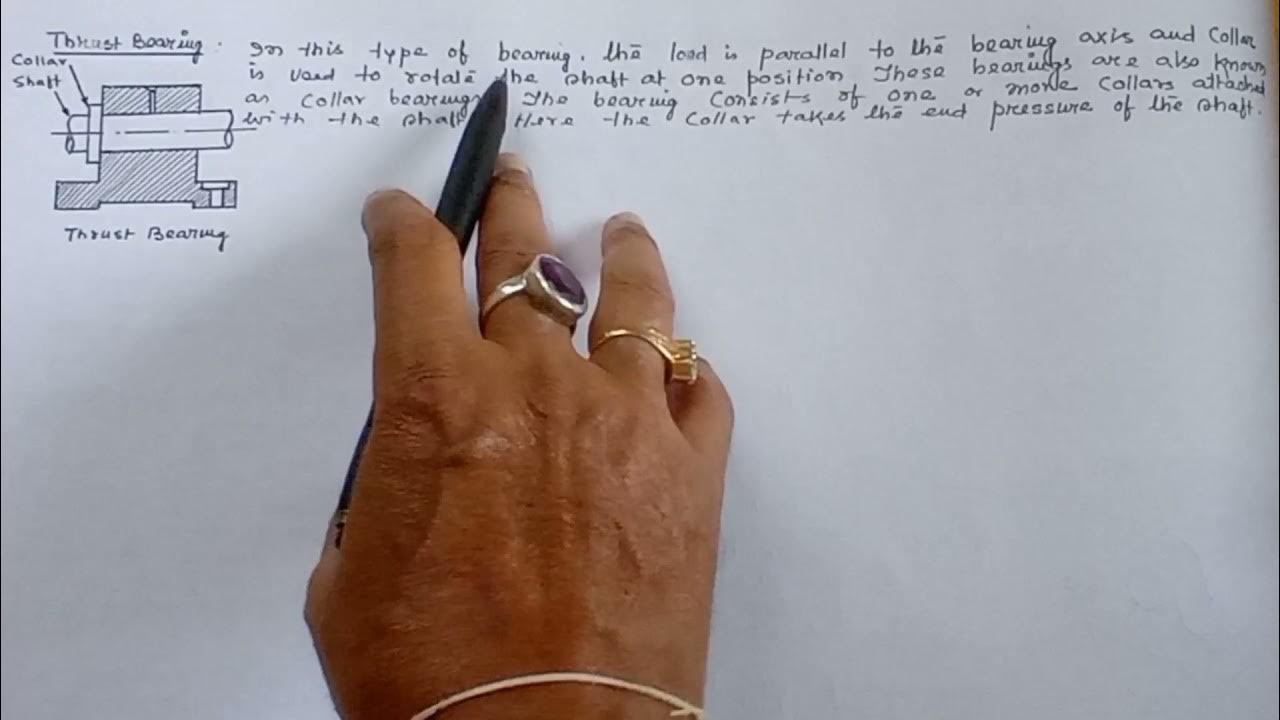 Thrust Bearing :
In this type of bearing, the load is parallel to the bearing axis and Collar
is used to rotate the shaft at one position. These bearings are also known
as Collar bearing. The bearing Consists of one or more Collars attached
with the shaft. Here the Collar takes the end pressure of the shaft.
Collar
Shaft
Thrust Bearing